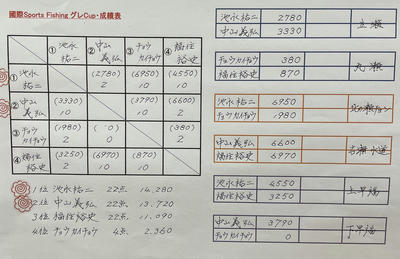 國際Sports Fishing グレCup・成績表
① 池永祐二 ② 中山義弘 ③ チョウカイチョウ ④ 橋住裕史
① 池永祐二 (2780) 2 (6950) 10 (4550) 10
② 中山義弘 (3330) 10 (3790) 10 (6600) 2
③ チョウカイチョウ (1980) 2 ( 0) 0 (380) 2
④ 橋住裕史 (3250) 2 (6970) 10 (870) 10
1位 池永祐二 22点 14.280
2位 中山義弘 22点 13.720
3位 橋住裕史 22点 11.090
4位 チョウカイチョウ 4点 2.360
池永祐二 2780
中山義弘 3330 立瀬
チョウカイチョウ 380
橋住裕史 870 丸瀬
池永祐二 6950
チョウカイチョウ 1980
中山義弘 6600
橋住裕史 6970 水道
池永祐二 4550
橋住裕史 3250 上早福
中山義弘 3790
チョウカイチョウ 0 下早福